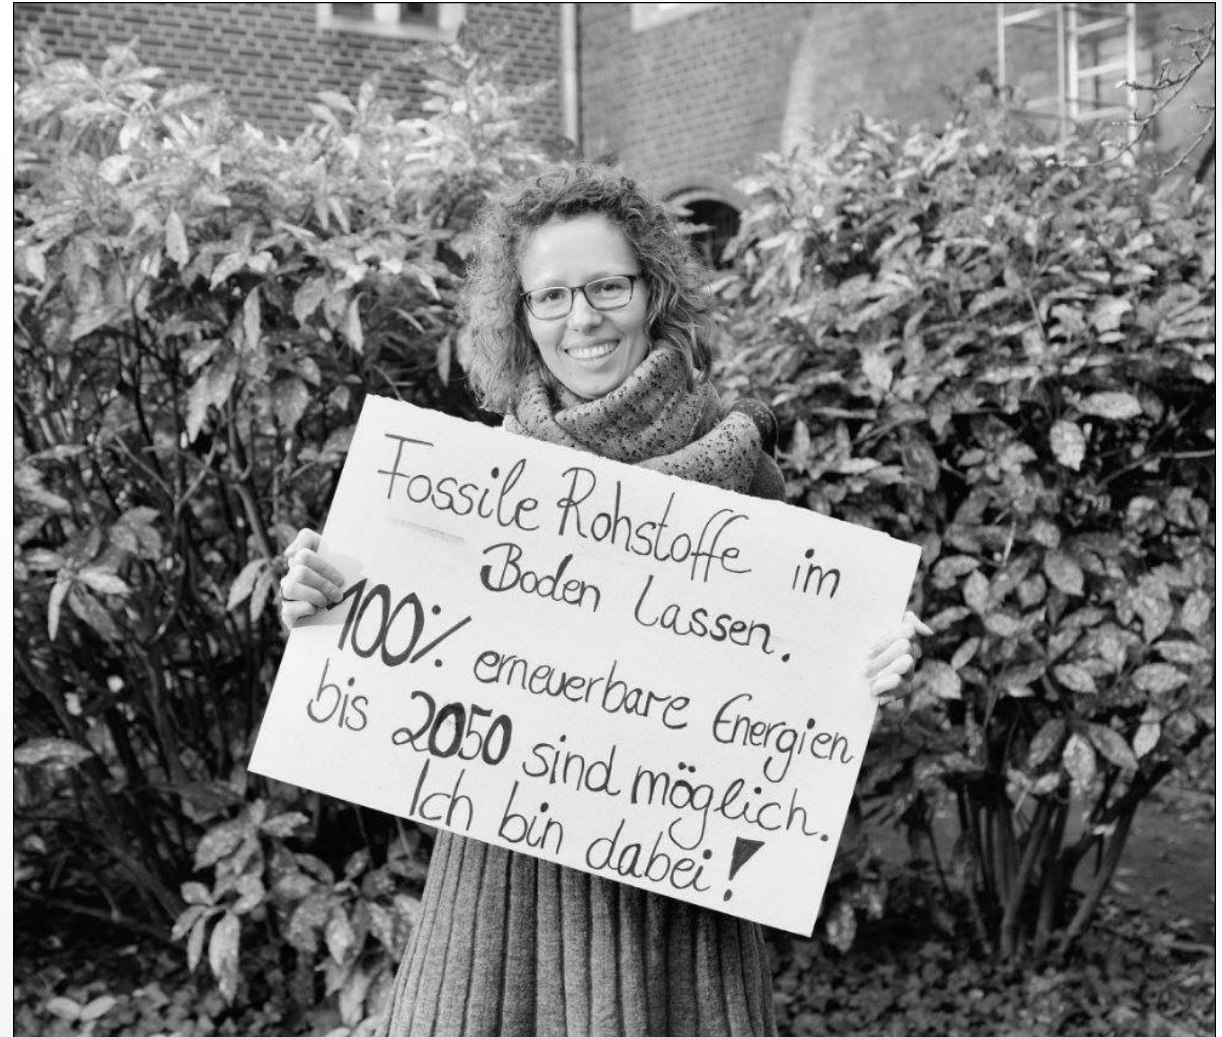 Fossile Rohstoffe im
Boden lassen.
100% erneuerbare Energien
bis 2050 sind möglich.
Ich bin dabei!